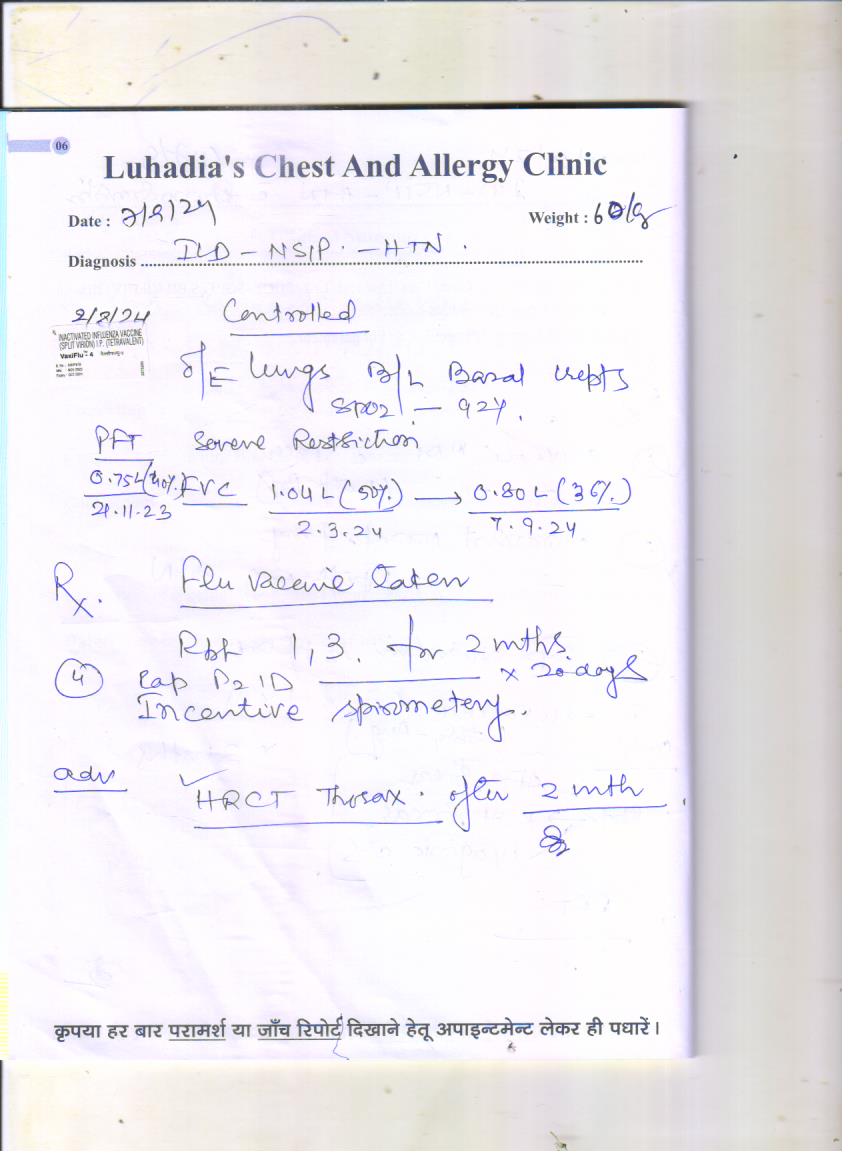 06
Luhadia's Chest And Allergy Clinic
Date : 7/9/24
Weight : 60kg
Diagnosis ILD - NSIP. - HTN.
2/8/24
INACTIVATED INFLUENZA VACCINE
(SPLIT VIRION) I.P. (TETRAVALENT)
VaxiFlu - 4
Controlled
O/E Lungs B/L Basal crepts
SPO2 - 92%.
PFT Severe Restriction
0.75L (40%) FVC 1.04 L (50%) → 0.80 L (36%)
21.11.23 2.3.24 7.9.24
Rx. Flu vaccine taken
Rpt 1, 3. for 2 mths.
4 Cap x 20 days
Incentive spirometery.
adv
HRCT Thorax. after 2 mth
कृपया हर बार परामर्श या जाँच रिपोर्ट दिखाने हेतू अपाइन्टमेन्ट लेकर ही पधारें।